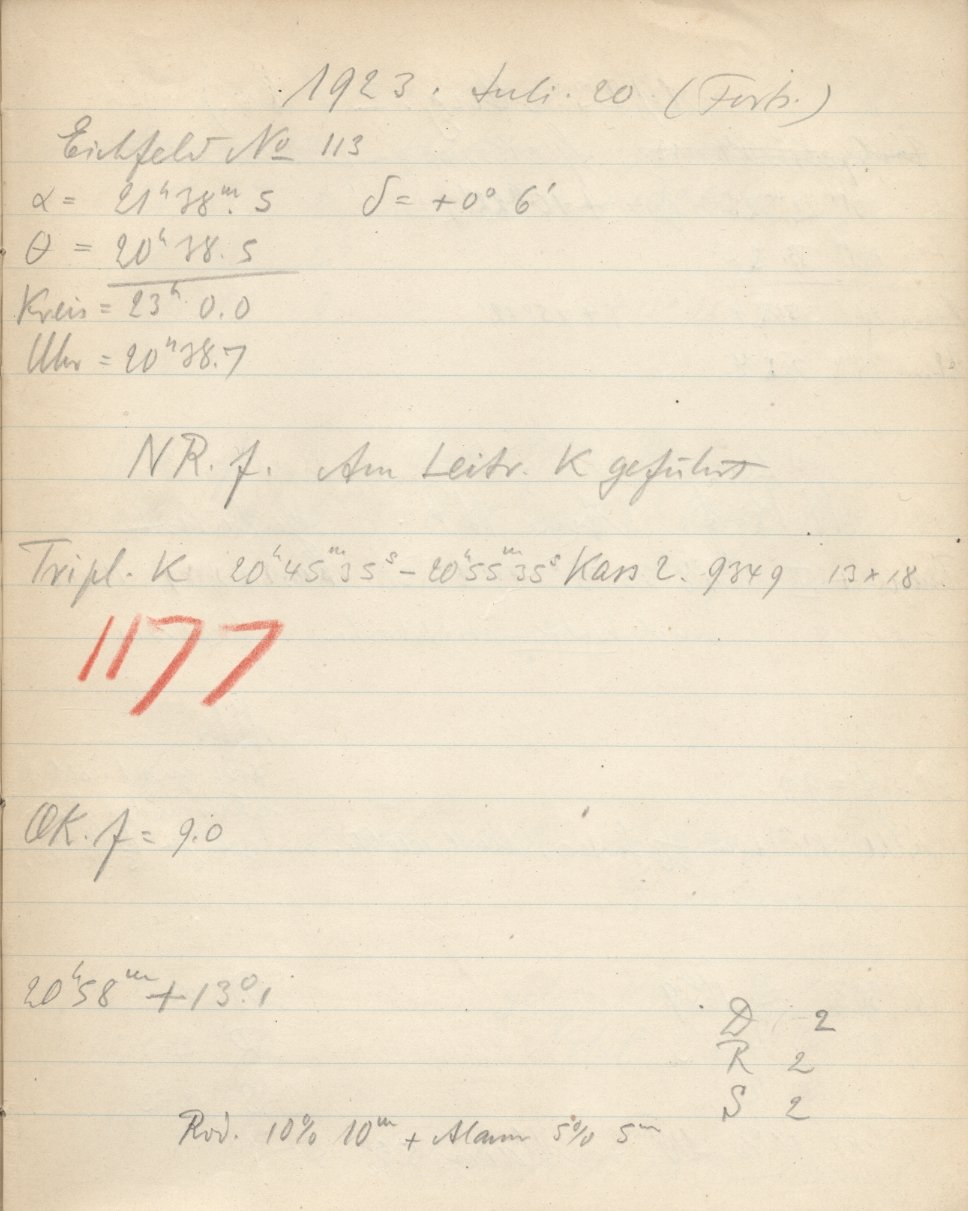 1923. Juli. 20 (Forts.)
Eichfeld No 113
α = 21ʰ 38ᵐ. 5 δ = +0° 6'
θ = 20ʰ 38. 5
Kreis = 23ʰ 0.0
Uhr = 20ʰ 38.7
NR. f. Am Leitr. K geführt
Tripl. K 20ʰ 45ᵐ 35ˢ – 20ʰ 55ᵐ 35ˢ Kass 2. 9349 13 × 18
1177
OK. f = 9.0
20ʰ 58ᵐ + 13°.1
D 2
R 2
S 2
Rod. 10% 10ᵐ + Alaun 5% 5ᵐ